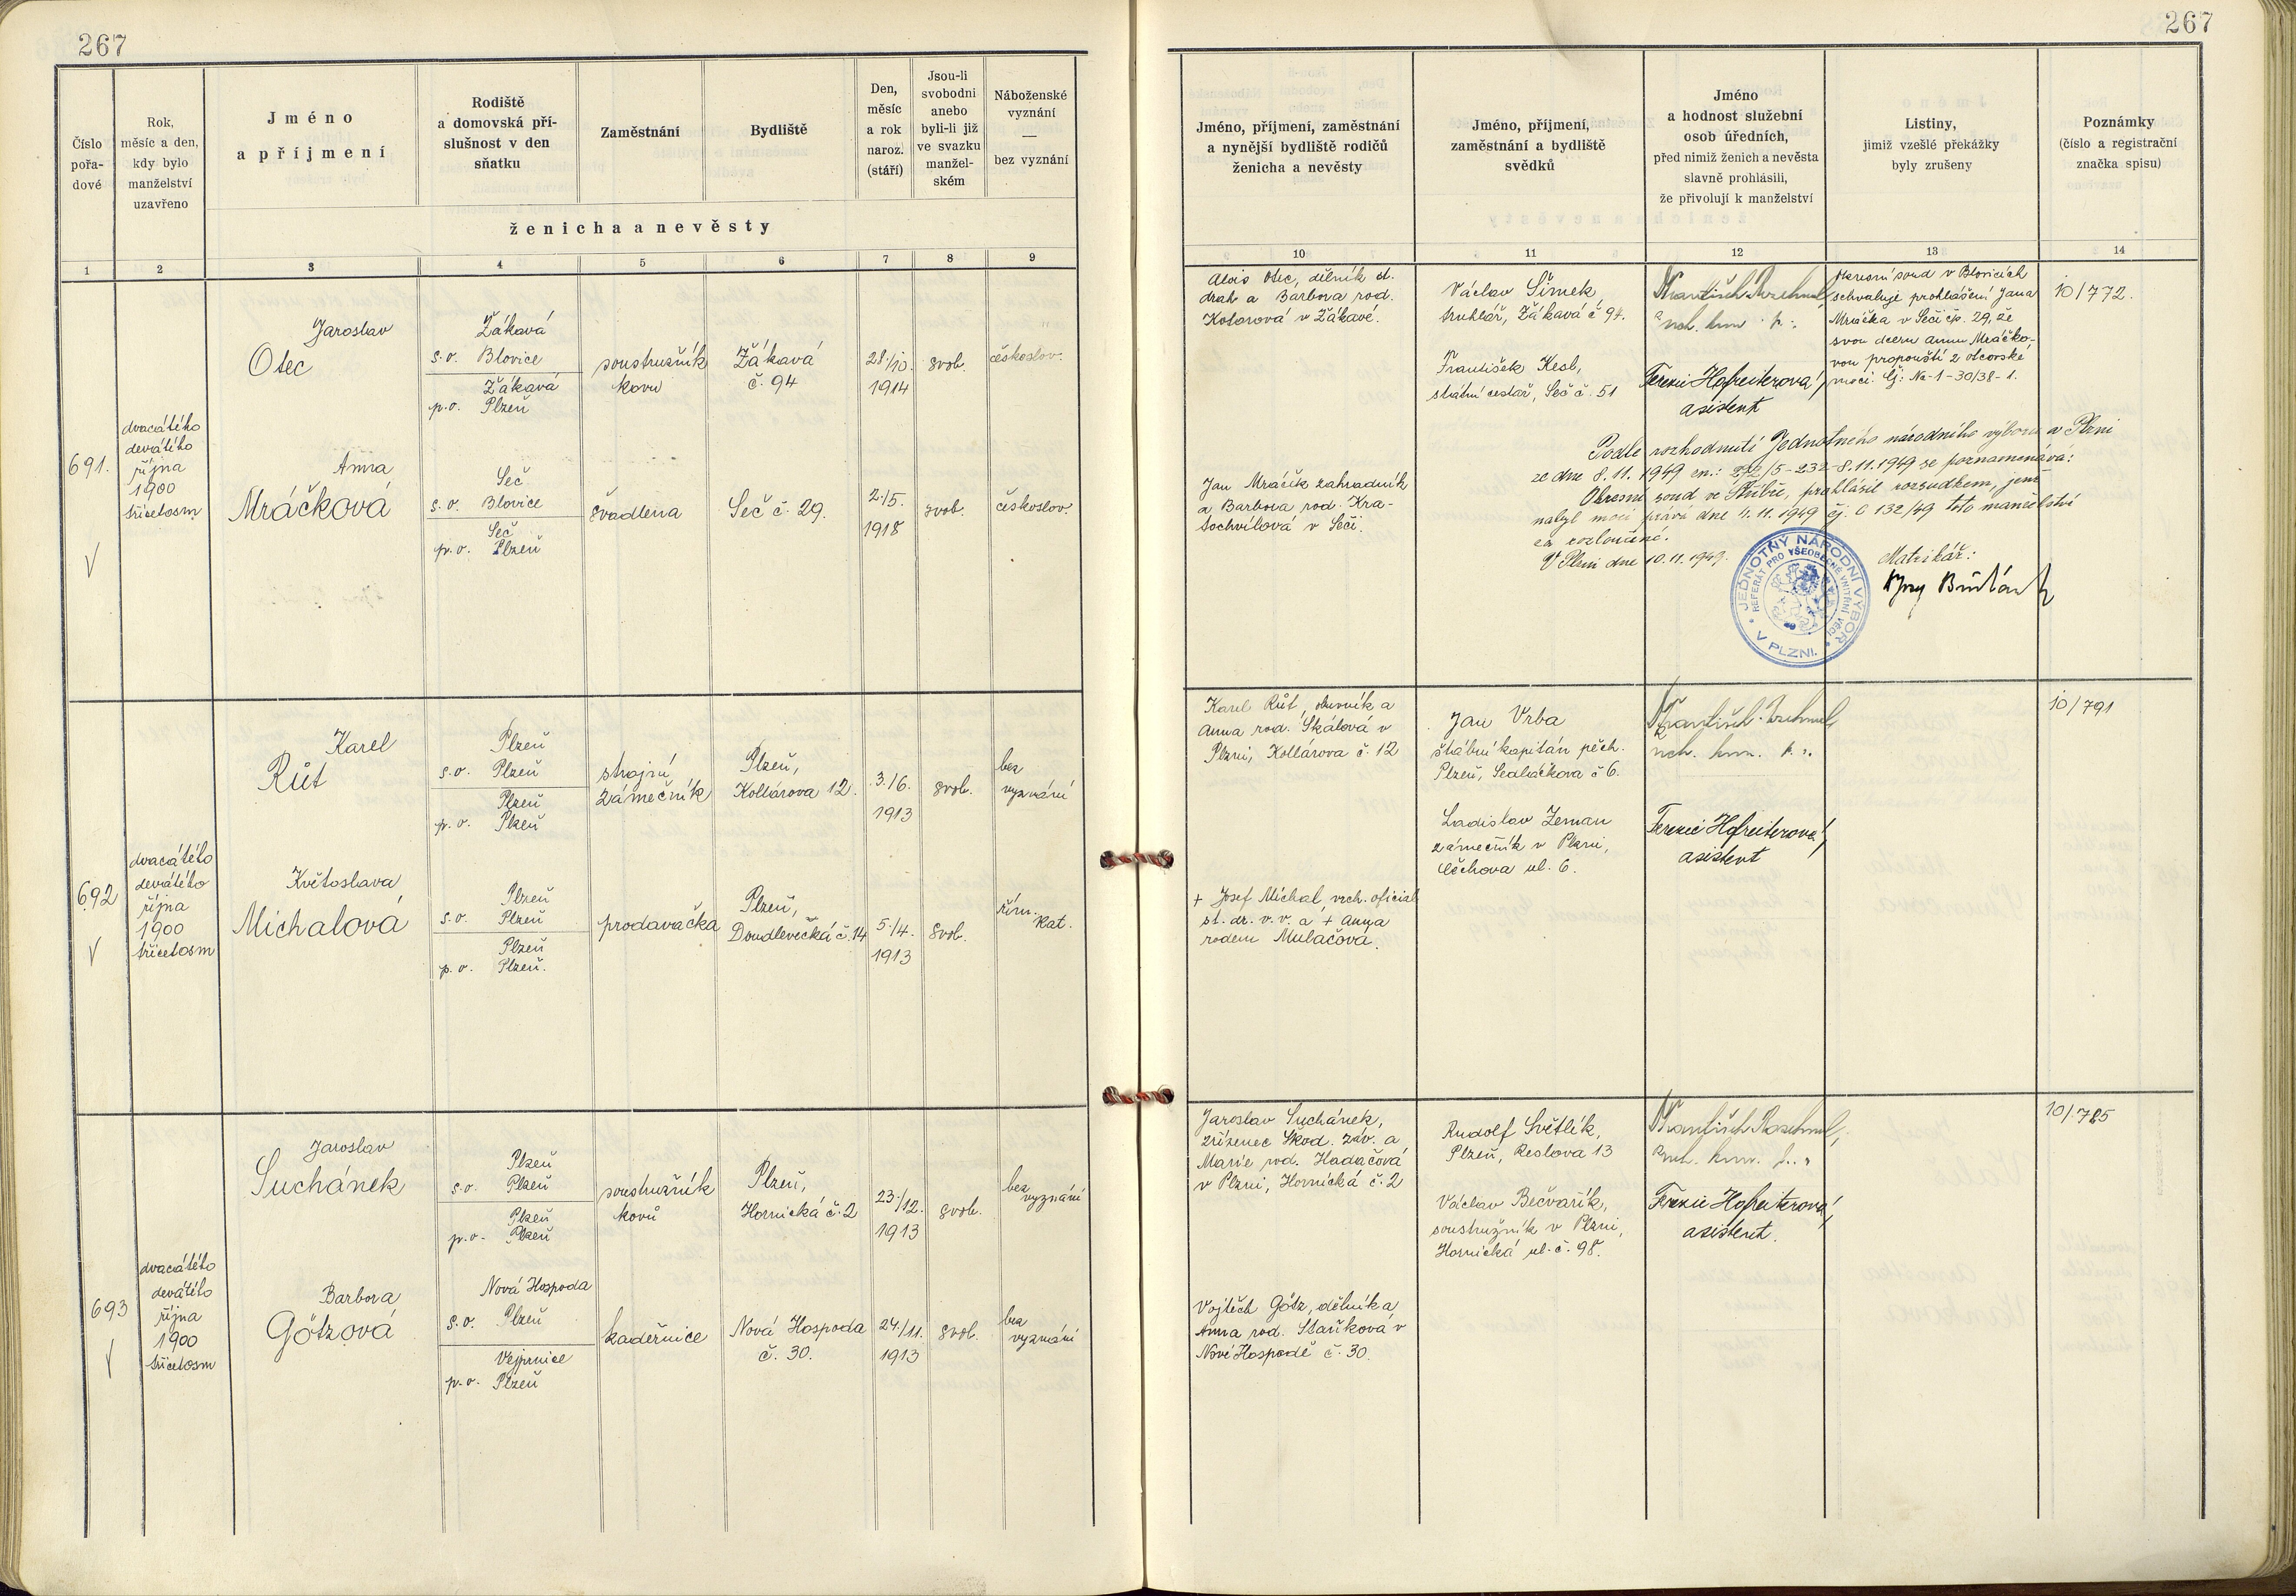 267
267
Číslo
pořa-
dové
Rok,
měsíc a den,
kdy bylo
manželství
uzavřeno
Jméno
a příjmení
Rodiště
a domovská pří-
slušnost v den
sňatku
Zaměstnání
Bydliště
Den,
měsíc
a rok
naroz.
(stáří)
Jsou-li
svobodni
anebo
byli-li již
ve svazku
manžel-
ském
Náboženské
vyznání
—
bez vyznání
ženicha a nevěsty
1 2 3 4 5 6 7 8 9
Jméno, příjmení, zaměstnání
a nynější bydliště rodičů
ženicha a nevěsty
Jméno, příjmení,
zaměstnání a bydliště
svědků
Jméno
a hodnost služební
osob úředních,
před nimiž ženich a nevěsta
slavně prohlásili,
že přivolují k manželství
Listiny,
jimiž vzešlé překážky
byly zrušeny
Poznámky
(číslo a registrační
značka spisu)
10 11 12 13 14
691.
dvacátého
devátého
října
1900
třicetosm
Jaroslav
Otec
Žákavá
s.o. Blovice
Žákavá
p.o. Plzeň
soustružník
kovu
Žákavá
č. 94
28./10.
1914
svob.
českoslov.
Anna
Mráčková
Seč
s.o. Blovice
Seč
p.o. Plzeň
švadlena
Seč č. 29.
2./5.
1918
svob.
českoslov.
Alois Otec, dělník st.
drah a Barbora rod.
Kotorová v Žákavé.
Jan Mráčik zahradník
a Barbora rod. Kra-
tochvílová v Seči.
Václav Šimek,
truhlář, Žákavá č 94.
František Kesl,
státní cestář, Seč č. 51
František
Terezie Hofreiterová,
asistent
Okresní soud v Blovicích
schvaluje prohlášení Jana
Mráčka v Seči čp. 29, že
svou dceru Annu Mráčko-
vou propouští z otcovské
moci. Čj: Nc-1-30/38-1.
10/772.
Podle rozhodnutí Jednotného národního výboru v Plzni
ze dne 8.11.1949 zn.: 272/5-232-8.11.1949 se poznamenává:
Okresní soud ve Stříbře, prohlásil rozsudkem, jenž
nabyl moci práva dne 4.11.1949 čj. C 132/49 toto manželství
za rozloučené.
V Plzni dne 10.11.1949.
Matrikář:
JEDNOTNÝ NÁRODNÍ VÝBOR
V PLZNI.
REFERÁT PRO VŠEOBECNÉ VNITŘNÍ VĚCI
692
dvacátého
devátého
října
1900
třicetosm
Karel
Růt
Plzeň
s.o. Plzeň
Plzeň
p.o. Plzeň
strojní
zámečník
Plzeň,
Kollárova 12.
3./6.
1913
svob.
bez
vyznání
Květoslava
Michalová
Plzeň
s.o. Plzeň
Plzeň
p.o. Plzeň.
prodavačka
Plzeň,
Doudlevecká č. 14
5./4.
1913
svob.
řím.
kat.
Karel Růt, obuvník a
Anna rod. Skálová v
Plzni, Kollárova č. 12
+ Josef Michal, vrch. oficial
st. dr. v. v. a + Anna
rodem Mulačova.
Jan Vrba
štábní kapitán pěch.
Plzeň, Sedláčkova č 6.
Ladislav Zeman
zámečník v Plzni,
Čechova ul. 6.
František
Terezie Hofreiterová,
asistent
10/791
693
dvacátého
devátého
října
1900
třicetosm
Jaroslav
Suchánek
Plzeň
s.o. Plzeň
Plzeň
p.o. Plzeň
soustružník
kovů
Plzeň,
Hornická č. 2
23./12.
1913
svob.
bez
vyznání
Barbora
Götzová
Nová Hospoda
s.o. Plzeň
Vejprnice
p.o. Plzeň
kadeřnice
Nová Hospoda
č. 30.
24./11.
1913
svob.
bez
vyznání
Jaroslav Suchánek,
zřízenec Škod. záv. a
Marie rod. Hadačová
v Plzni, Hornická č. 2
Vojtěch Götz, dělník a
Anna rod. Staříková v
Nové Hospodě č. 30.
Rudolf Světlík,
Plzeň, Reslova 13
Václav Bečvařík,
soustružník v Plzni,
Hornická ul. č. 98.
František
Terezie Hofreiterová,
asistent.
10/785